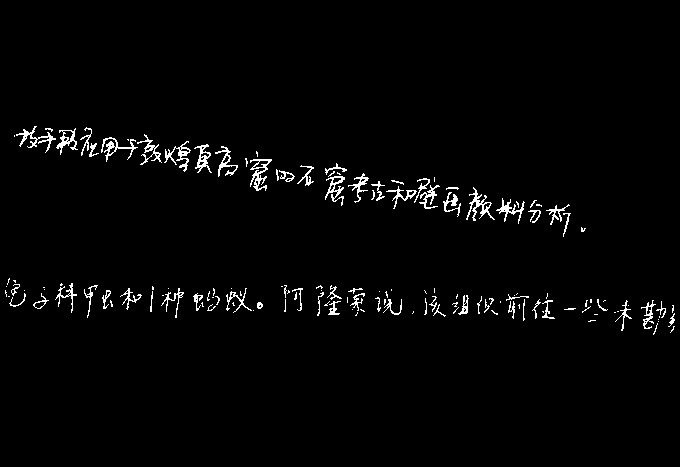 技手段应用于敦煌莫高窟的石窟考古和壁画颜料分析。
子科甲虫和1种蚂蚁。阿隆索说,该组织前往一些未勘